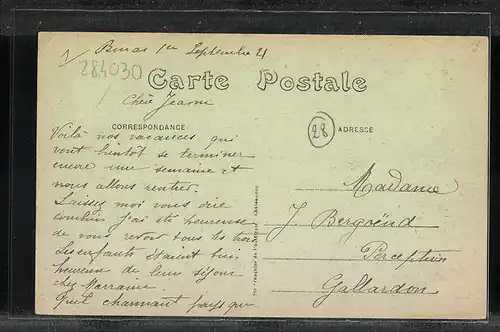 1er Septembre 21
284030
Carte Postale
Chère Jeanne
CORRESPONDANCE
28
ADRESSE
Voilà nos vacances qui
vont bientôt se terminer
encore une semaine et
nous allons rentrer.
Laissez moi vous dire
combien j'ai été heureuse
de vous revoir tous les trois
Les enfants étaient bien
heureuse de leur séjour
chez Marraine.
Quel charmant pays que
Madame
J. Bergoënd
Perception
Gallardon